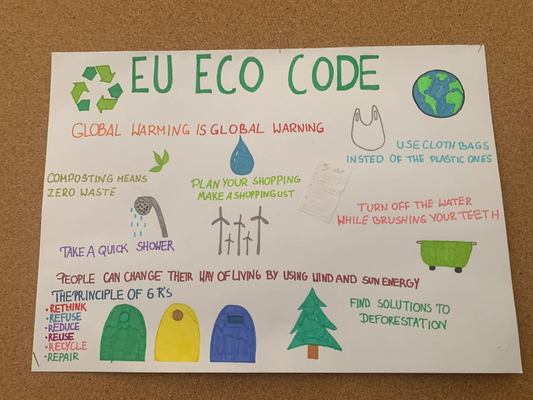 EU ECO CODE
GLOBAL WARMING IS GLOBAL WARNING
USE CLOTH BAGS
INSTED OF THE PLASTIC ONES
COMPOSTING MEANS
ZERO WASTE
PLAN YOUR SHOPPING
MAKE A SHOPPING LIST
TURN OFF THE WATER
WHILE BRUSHING YOUR TEETH
TAKE A QUICK SHOWER
PEOPLE CAN CHANGE THEIR WAY OF LIVING BY USING WIND AND SUN ENERGY
THE PRINCIPLE OF 6 R'S
• RETHINK
• REFUSE
• REDUCE
• REUSE
• RECYCLE
• REPAIR
FIND SOLUTIONS TO
DEFORESTATION